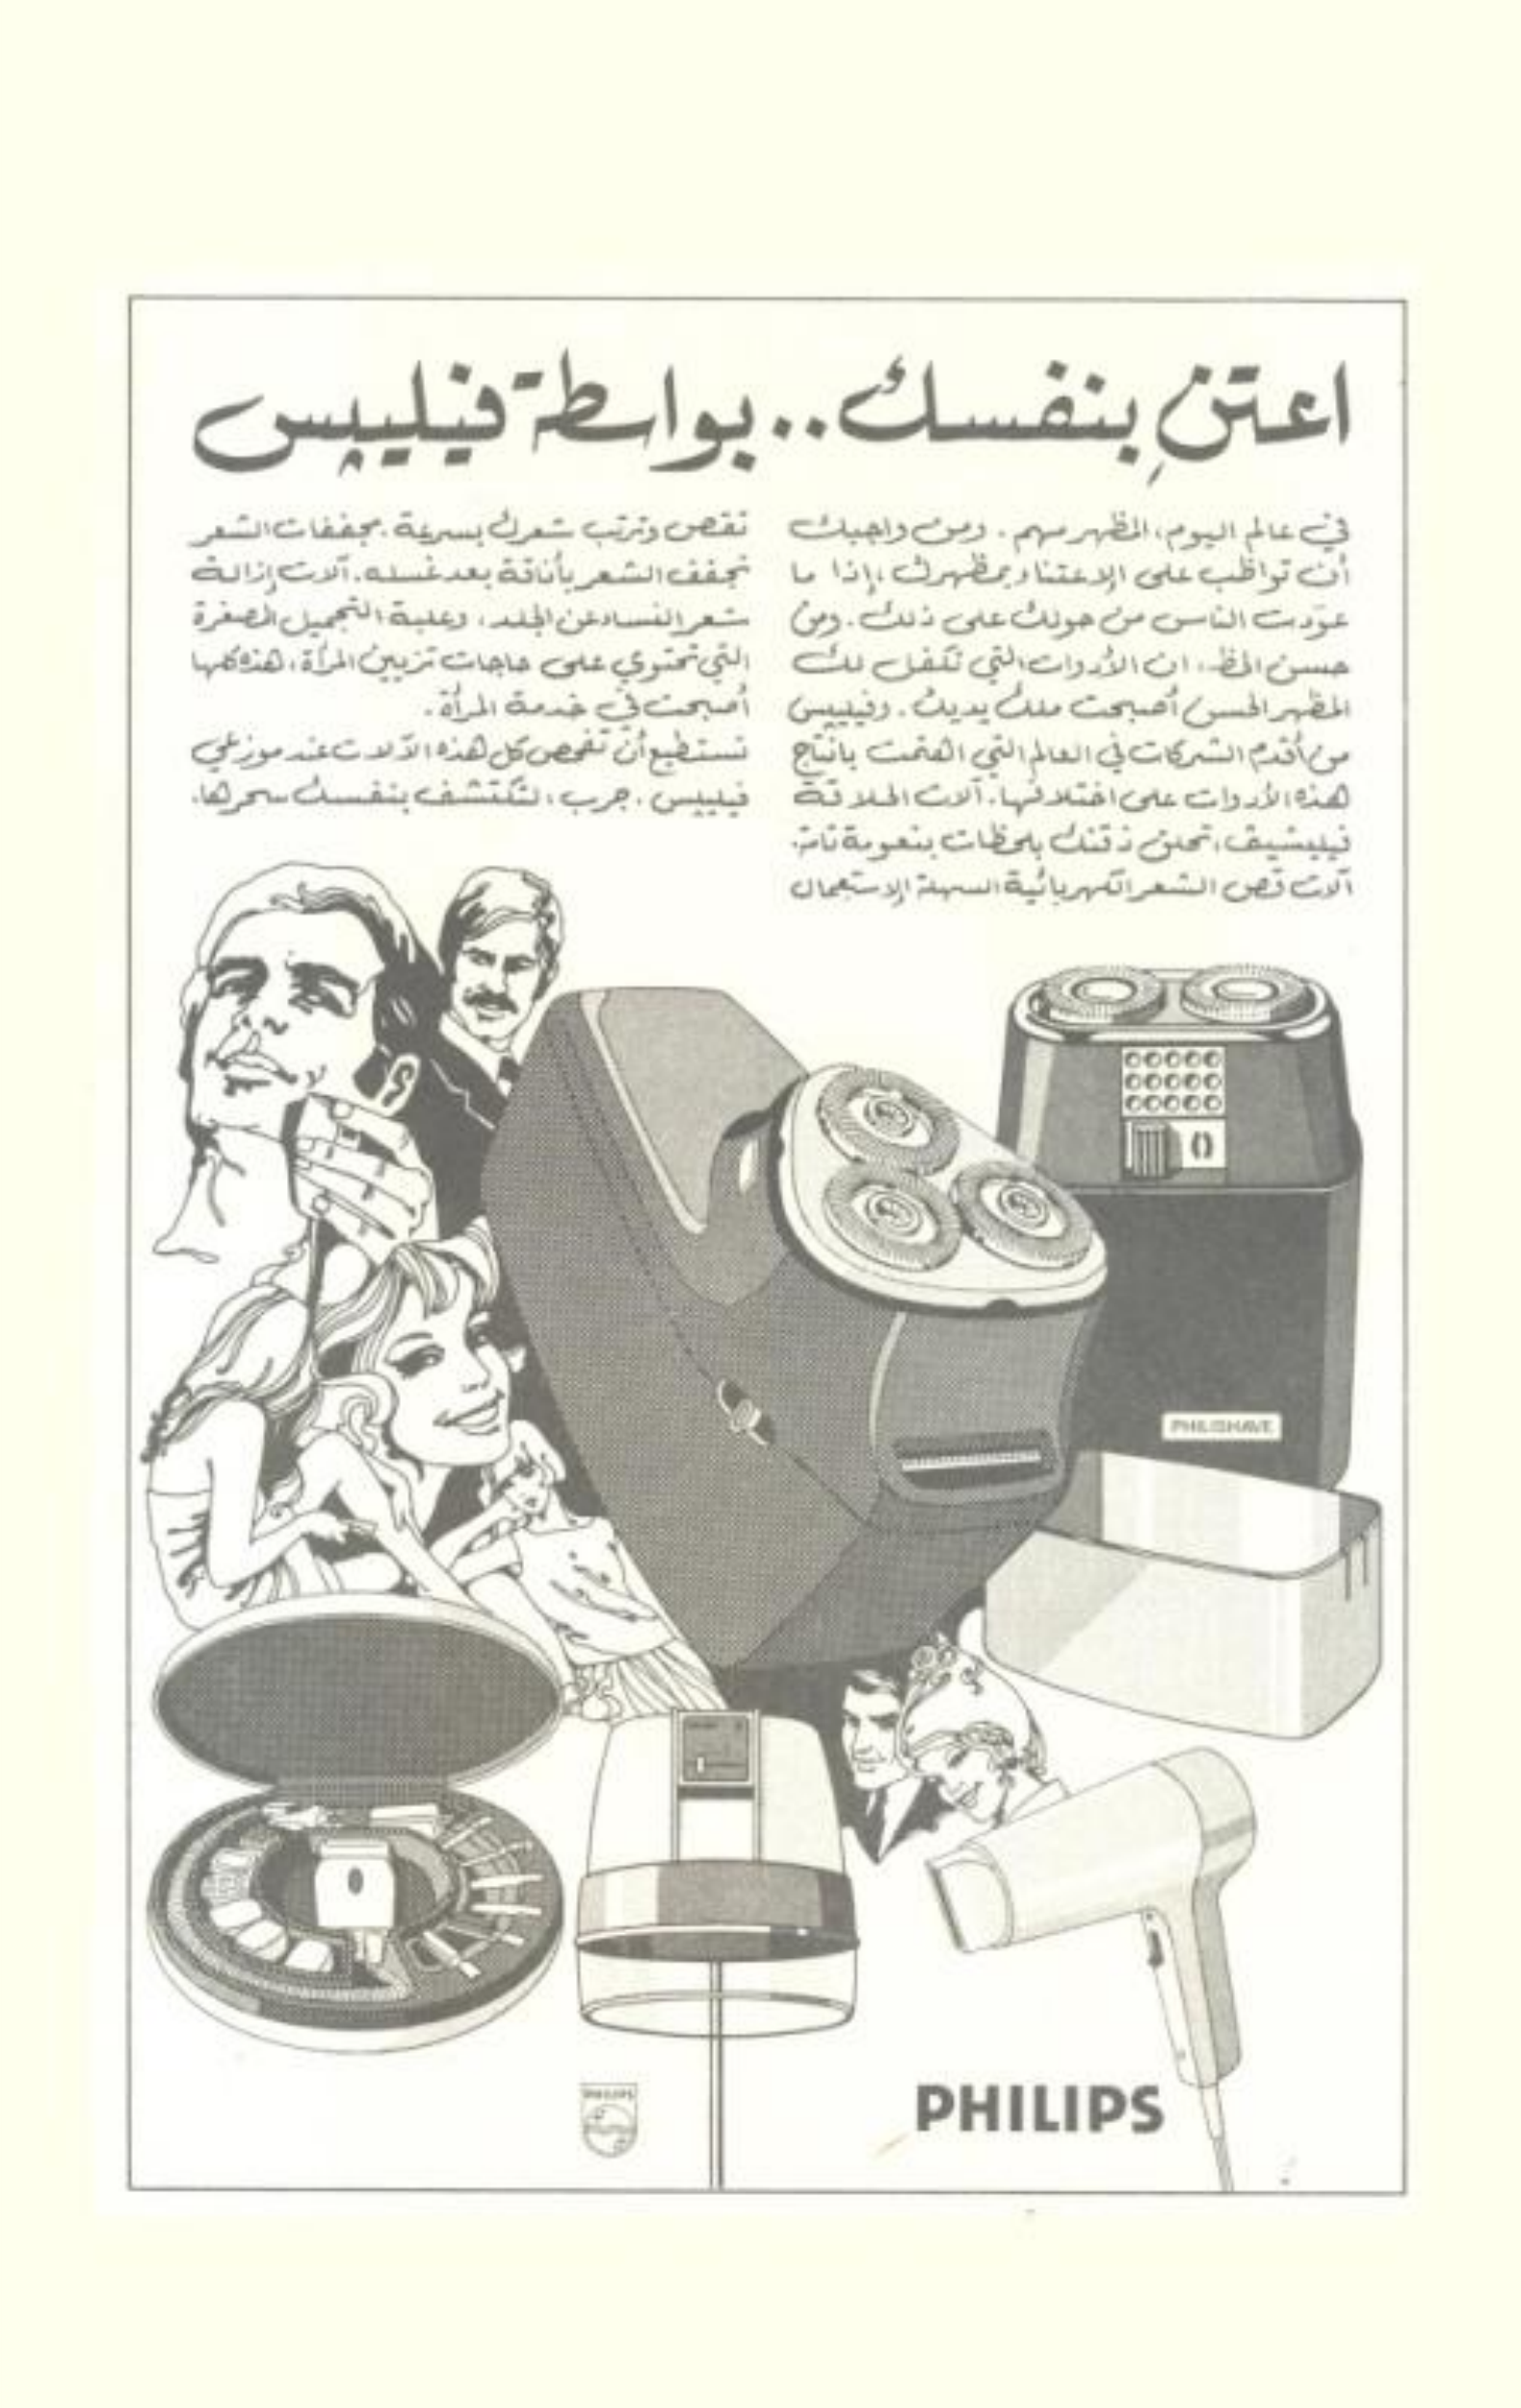 اعتنِ بنفسك.. بواسطة فيليبس
في عالم اليوم، المظهر مهم. ومن واجبك
أن تواظب على الإعتناء بمظهرك، إذا ما
عوّدت الناس من حولك على ذلك. ومن
حسن الحظ، ان الأدوات التي تكفل لك
المظهر الحسن أصبحت ملك يديك. وفيليبس
من أقدم الشركات في العالم التي اهتمت بانتاج
هذه الأدوات على اختلافها. آلات الحلاقة
فيليشيف، تحلق ذقنك بلحظات بنعومة تامة.
آلات قص الشعر الكهربائية السهلة الإستعمال
تقص وترتب شعرك بسرعة. مجففات الشعر
تجفف الشعر بأناقة بعد غسله. آلات إزالة
شعر النساء عن الجلد، وعلبة التجميل المصغرة
التي تحتوي على حاجات تزيين المرأة، هذه كلها
أصبحت في خدمة المرأة.
تستطيع أن تفحص كل هذه الآلات عند موزعي
فيليبس. جرب، لتكتشف بنفسك سحرها.
PHILISHAVE
PHILIPS
PHILIPS